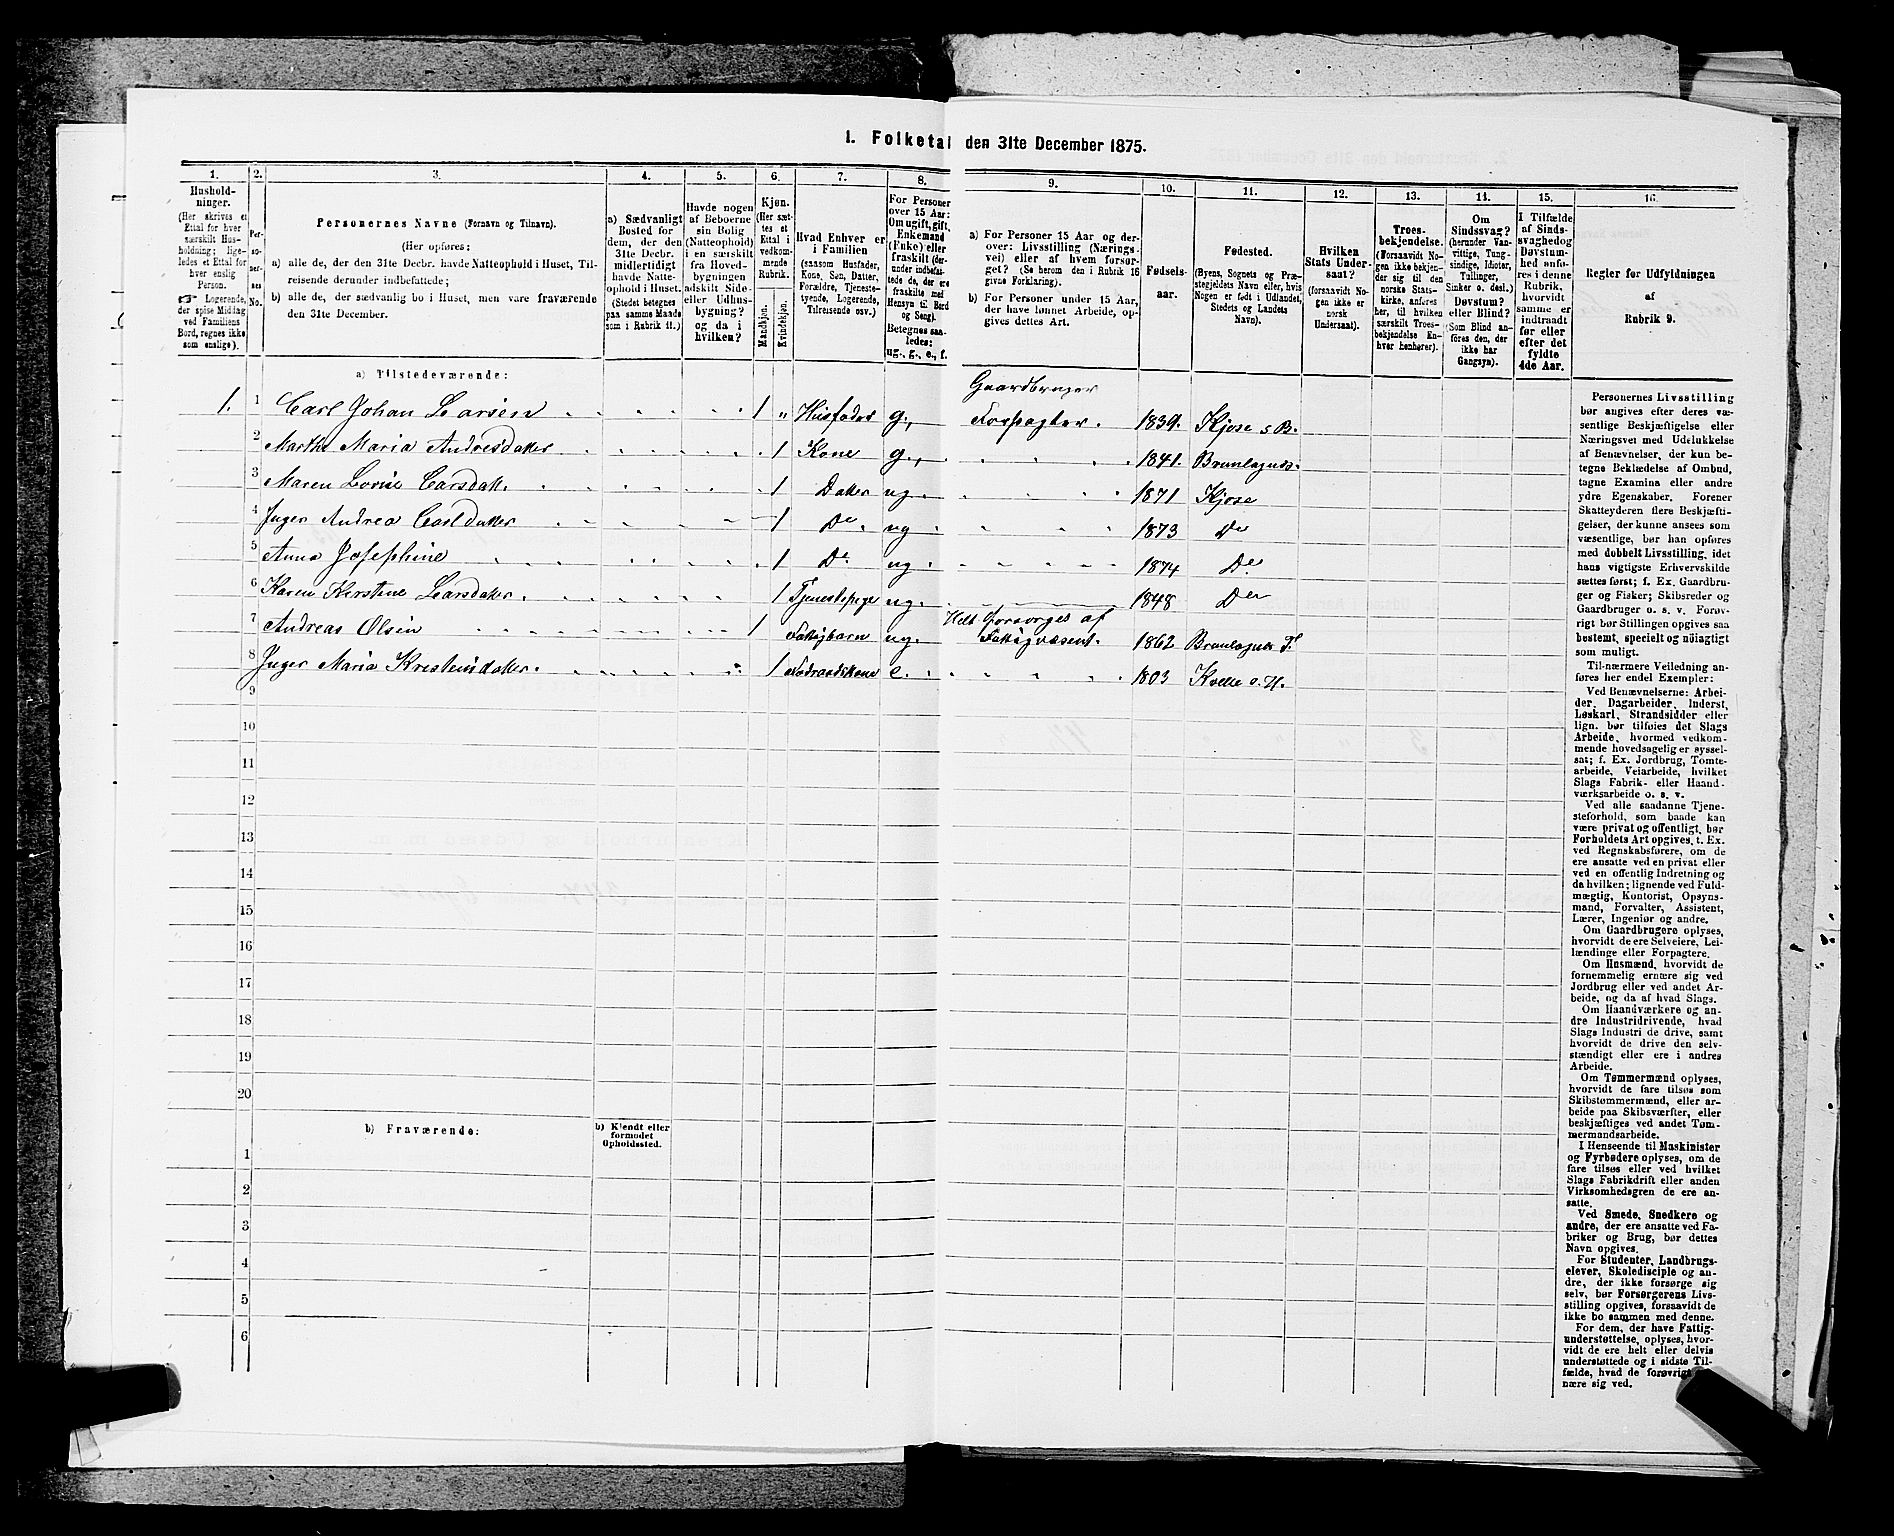 1. Folketal den 31te December 1875.
1.
2.
3.
4.
5.
6.
7.
8.
9.
10.
11.
12.
13.
14.
15.
16.
Hushold-
ninger.
(Her skrives et
Ettal for hver
særskilt Hus-
holdning; lige-
ledes et Ettal for
hver enslig
Person.
☞ Logerende,
der spise Middag
ved Familiens
Bord, regnes ikke
som enslige).
Per-
so-
ner-
nes
No.
Personernes Navne (Fornavn og Tilnavn).
(Her opføres:
a) alle de, der den 31te Decbr. havde Natteophold i Huset, Til-
reisende derunder indbefattede;
b) alle de, der sædvanlig bo i Huset, men vare fraværende
den 31te December.
a) Sædvanligt
Bosted for
dem, der den
31te Decbr.
midlertidigt
havde Natte-
ophold i Huset.
(Stedet betegnes
paa samme Maade
som i Rubrik 11.)
Havde nogen
af Beboerne
sin Bolig
(Natteophold)
i en særskilt
fra Hoved-
bygningen
adskilt Side-
eller Udhus-
bygning?
og da i
hvilken?
Kjøn.
(Her sæt-
tes et
Ettal i
vedkom-
mende
Rubrik.
Mandkjøn.
Kvindekjøn.
Hvad Enhver er
i Familien
(saasom Husfader,
Kone, Søn, Datter,
Forældre, Tjeneste-
tyende, Logerende,
Tilreisende osv.)
For Personer
over 15 Aar:
Om ugift, gift,
Enkemand
(Enke) eller
fraskilt (der-
under indbefat-
tede de, der ere
fraskilte med
Hensyn til Bord
og Seng).
Betegnes saa-
ledes:
ug., g., e., f.
a) For Personer 15 Aar og der-
over: Livsstilling (Nærings-
vei) eller af hvem forsør-
get? (Se herom den i Rubrik 16
givne Forklaring).
b) For Personer under 15 Aar,
der have lønnet Arbeide, op-
gives dettes Art.
Fødsels-
aar.
Fødested.
(Byens, Sognets og Præ-
stegjeldets Navn eller, hvis
Nogen er født i Udlandet,
Stedets og Landets
Navn).
Hvilken
Stats Under-
saat?
(forsaavidt No-
gen ikke er
norsk
Undersaat).
Troes-
bekjendelse.
(Forsaavidt No-
gen ikke bekjen-
der sig til den
norske Stats-
kirke, anføres
her, til hvilken
særskilt Troes-
bekjendelse En-
hver henhører).
Om
Sindssvag?
(herunder Van-
vittige, Tung-
sindige, Idioter,
Tullinger,
Sinker o. desl.)
Døvstum?
eller Blind?
(Som Blind an-
føres den, der
ikke har
Gangsyn).
I Tilfælde
af Sinds-
svaghed og
Døvstum-
hed anfø-
res i denne
Rubrik,
hvorvidt
samme er
indtraadt
før eller
efter det
fyldte
4de Aar.
Regler for Udfyldningen
af
Rubrik 9.
a) Tilstedeværende:
1. 1 Carl Johan Larsen 1 " Husfader g., Gaardbruger Forpagter. 1839. Kjose s B.
2 Marthe Maria Andresdater 1 Kone g., 1841. Brunlagnæs.
3 Maren Lovise Carsdat. 1 Dater ug. 1871 Kjose
4 Inger Andrea Carldater 1 Do. ug 1873 Do
5 Anna Josephine 1 Do. ug. 1874 Do.
6 Karen Kirstine Larsdater. 1 Tjenestepige ug. 1848 Do
7 Andreas Olsen 1 Fattigbarn ug. Helt forsørges af Fattigvæsent. 1862 Brunlagnæs P.
8 Inger Maria Kristensdater. 1 Fødraadskone e. 1803 Kvelle o. H.
9
10
11
12
13
14
15
16
17
18
19
20
b) Fraværende:
b) Kjendt eller
formodet
Opholdssted.
1
2
3
4
5
6
Personernes Livsstilling
bør angives efter deres væ-
sentlige Beskjæftigelse eller
Næringsvei med Udelukkelse
af Benævnelser, der kun be-
tegne Beklædelse af Ombud,
tagne Examina eller andre
ydre Egenskaber. Forener
Skatteyderen flere Beskjæfti-
gelser, der kunne ansees som
væsentlige, bør han opføres
med dobbelt Livsstilling, idet
hans vigtigste Erhvervskilde
sættes først; f. Ex. Gaardbru-
ger og Fisker; Skibsreder og
Gaardbruger o. s. v. Forøv-
rigt bør Stillingen opgives saa
bestemt, specielt og nøiagtigt
som muligt.
Til nærmere Veiledning an-
føres her endel Exempler:
Ved Benævnelserne: Arbei-
der, Dagarbeider, Inderst,
Løskarl, Strandsidder eller
lign. bør tilføies det Slags
Arbeide, hvormed vedkom-
mende hovedsagelig er syssel-
sat; f. Ex. Jordbrug, Tomte-
arbeide, Veiarbeide, hvilket
Slags Fabrik- eller Haand-
værksarbeide o. s. v.
Ved alle saadanne Tjene-
steforhold, som baade kan
være privat og offentligt, bør
Forholdets Art opgives, t. Ex.
ved Regnskabsførere, om de
ere ansatte ved en privat eller
ved en offentlig Indretning og
da hvilken; lignende ved Fuld-
mægtig, Kontorist, Opsyns-
mand, Forvalter, Assistent,
Lærer, Ingeniør og andre.
Om Gaardbrugere oplyses,
hvorvidt de ere Selveiere, Lei-
lændinge eller Forpagtere.
Om Husmænd, hvorvidt de
fornemmelig ernære sig ved
Jordbrug eller ved andet Ar-
beide, og da af hvad Slags.
Om Haandværkere og an-
dre Industridrivende, hvad
Slags Industri de drive, samt
hvorvidt de drive den selv-
stændigt eller ere i andres
Arbeide.
Om Tømmermænd oplyses,
hvorvidt de fare tilsøs som
Skibstømmermænd, eller ar-
beide paa Skibsværfter, eller
beskjæftiges ved andet Tøm-
mermandsarbeide.
I Henseende til Maskinister
og Fyrbødere oplyses, om de
fare tilsøs eller ved hvilket
Slags Fabrikdrift eller anden
Virksomhedsgren de ere an-
satte.
Ved Smede, Snedkere og
andre, der ere ansatte ved Fa-
briker og Brug, bør dettes
Navn opgives.
For Studenter, Landbrugs-
elever, Skoledisciple og an-
dre, der ikke forsørge sig
selv, bør Forsørgerens Livs-
stilling opgives, forsaavidt de
ikke bo sammen med denne.
For dem, der have Fattig-
understøttelse, oplyses, hvor-
vidt de ere helt eller delvis
understøttede og i sidste Til-
fælde, hvad de forøvrigt
nære sig ved.